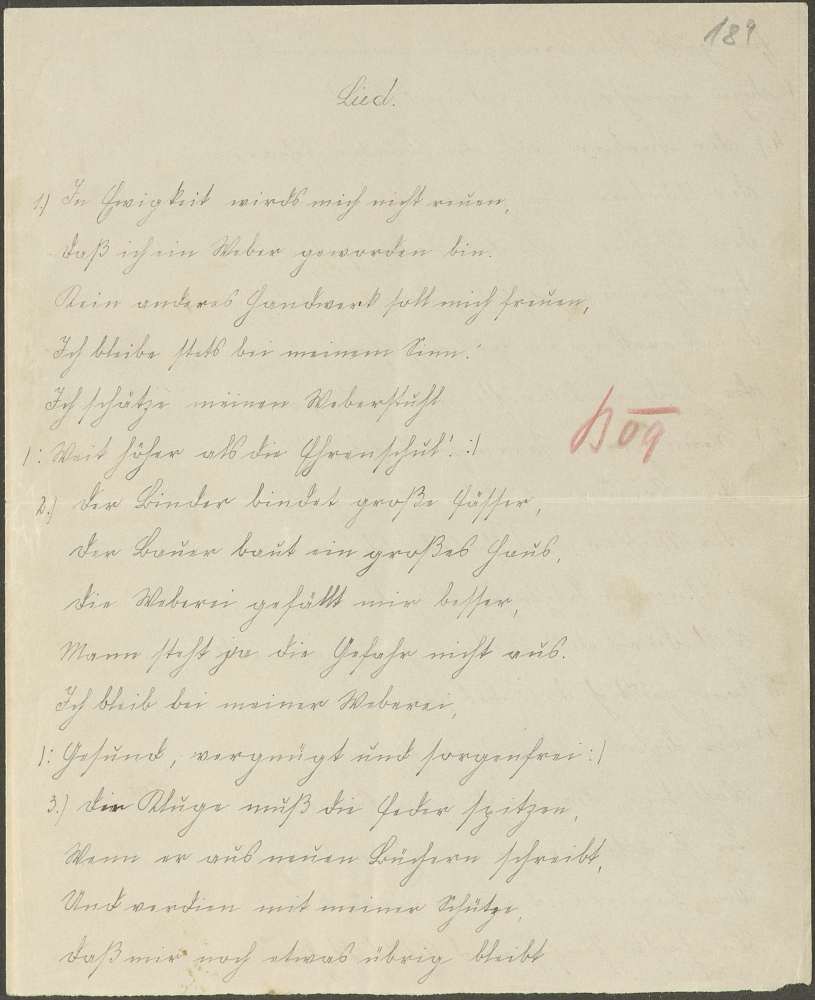 189
Lied.
1.) In Ewigkeit wirds mich nicht reuen,
daß ich ein Weber geworden bin.
Kein anderes Handwerk soll mich freuen,
Ich bleibe stets bei meinem Sinn.
Ich schätze meinen Weberstuhl
|: Weit höher als die Ehrenschul'. :|
2.) Der Binder bindet große Fässer,
Der Bauer baut ein großes Haus,
die Weberei gefällt mir besser,
Mann steht ja die Gefahr nicht aus.
Ich bleib bei meiner Weberei,
|: Gesund, vergnügt und sorgenfrei :|
3.) Der Kluge muß die Feder spitzen,
Wenn er aus neuen Büchern schreibt,
Und verdien mit meiner Schütze,
daß mir noch etwas übrig bleibt